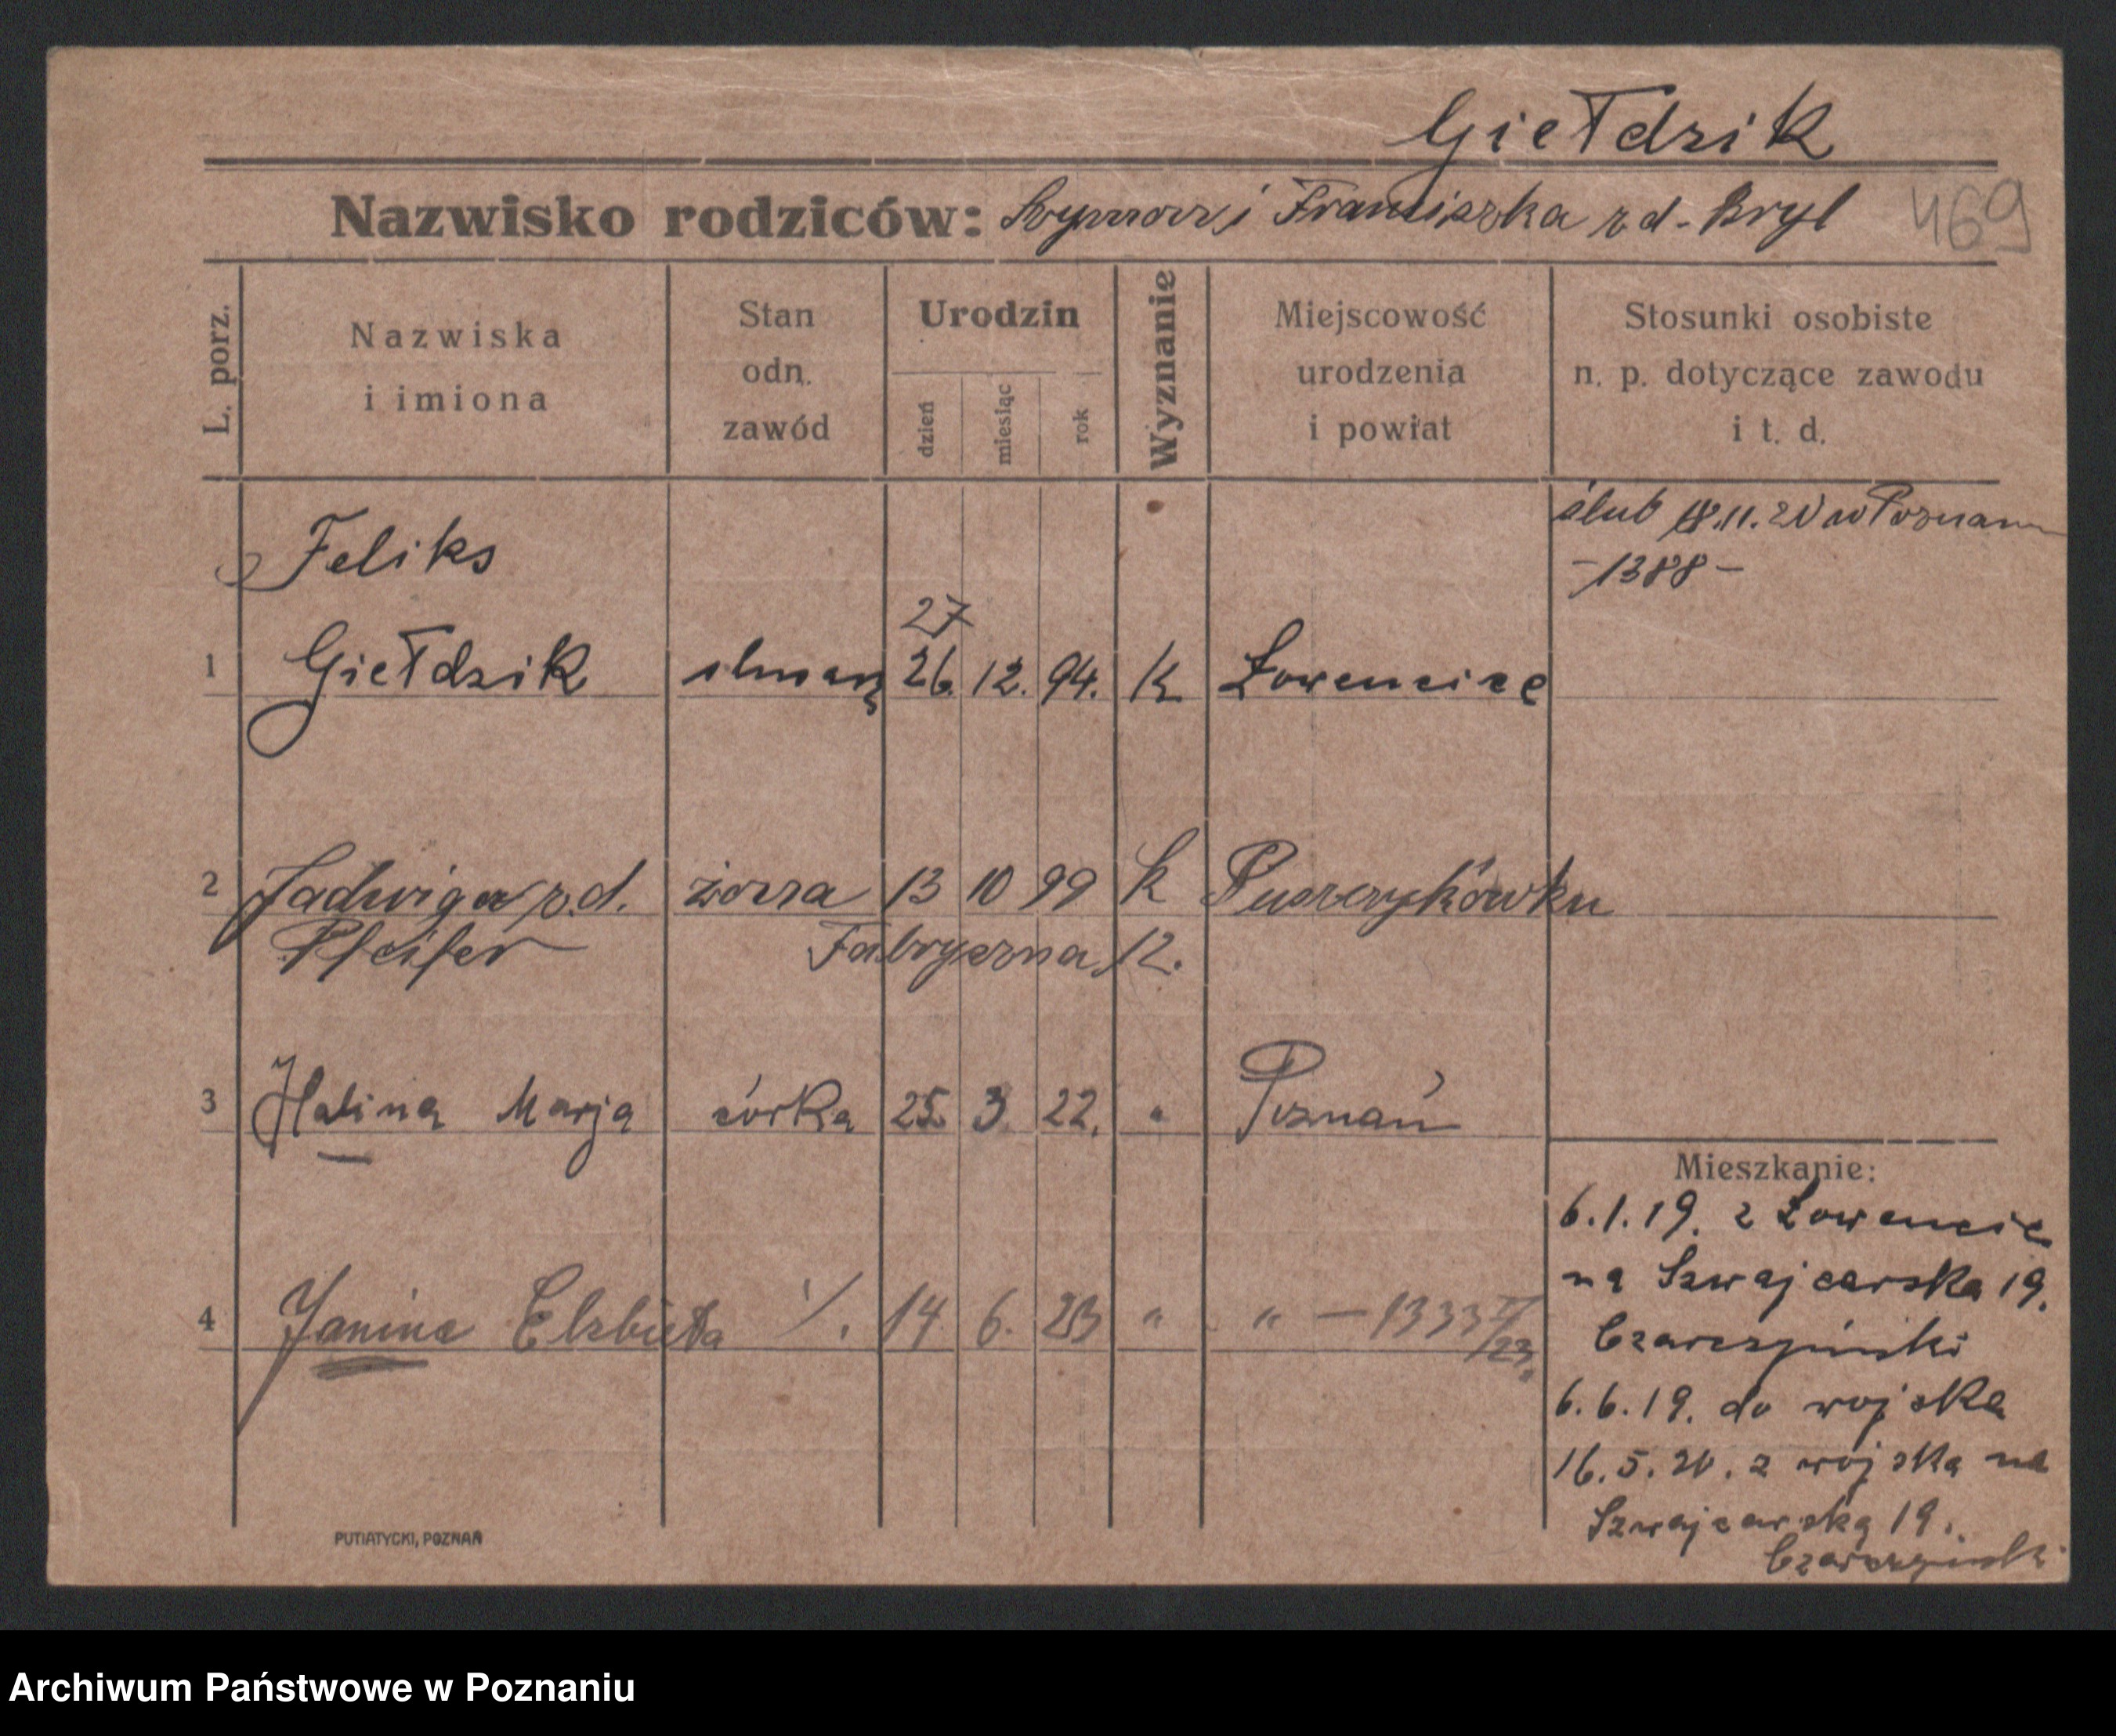 Giełdzik
Nazwisko rodziców: Szymon i Franciszka z d - Bryl
469
L. porz.
Nazwiska
i imiona
Stan
odn.
zawód
Urodzin
dzień
miesiąc
rok
Wyznanie
Miejscowość
urodzenia
i powiat
Stosunki osobiste
n. p. dotyczące zawodu
i t. d.
ślub 18.11.20 w Poznaniu
-1388-
Feliks
27
1 Giełdzik 26. 12. 94. K Łowencice
2 Jadwiga z.d. żona 13 10 99 K Puszczykówku
Pfeifer Fabryczna 12.
3 Halina Marja córka 25. 3. 22. " Poznań
4 Janina Elzbieta 14 6. 23 " " - 1333
/23.
Mieszkanie:
6.1.19. z Łowencic
na Szwajcarska 19.
Czarczyński
6.6.19. do wojska
16.5.20. z wojska na
Szwajcarską 19.
Czarczyński
PUTIATYCKI, POZNAŃ
Archiwum Państwowe w Poznaniu